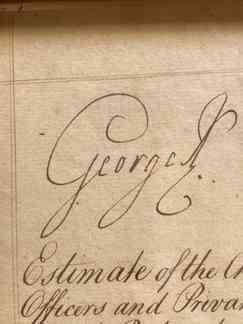 George R.
Estimate of the
Officers and